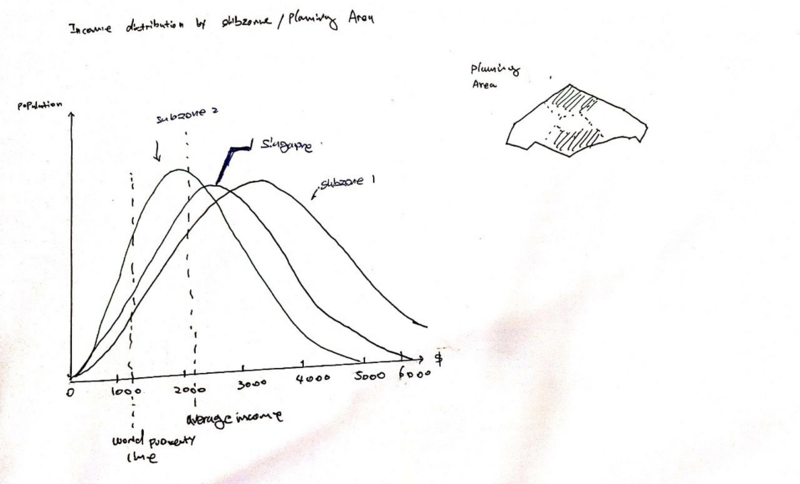 Income distribution by subzone / Planning Area
Planning
Area
Population
subzone 2
Singapore
subzone 1
$
0 1000 2000 3000 4000 5000 6000
average income
world poverty
line